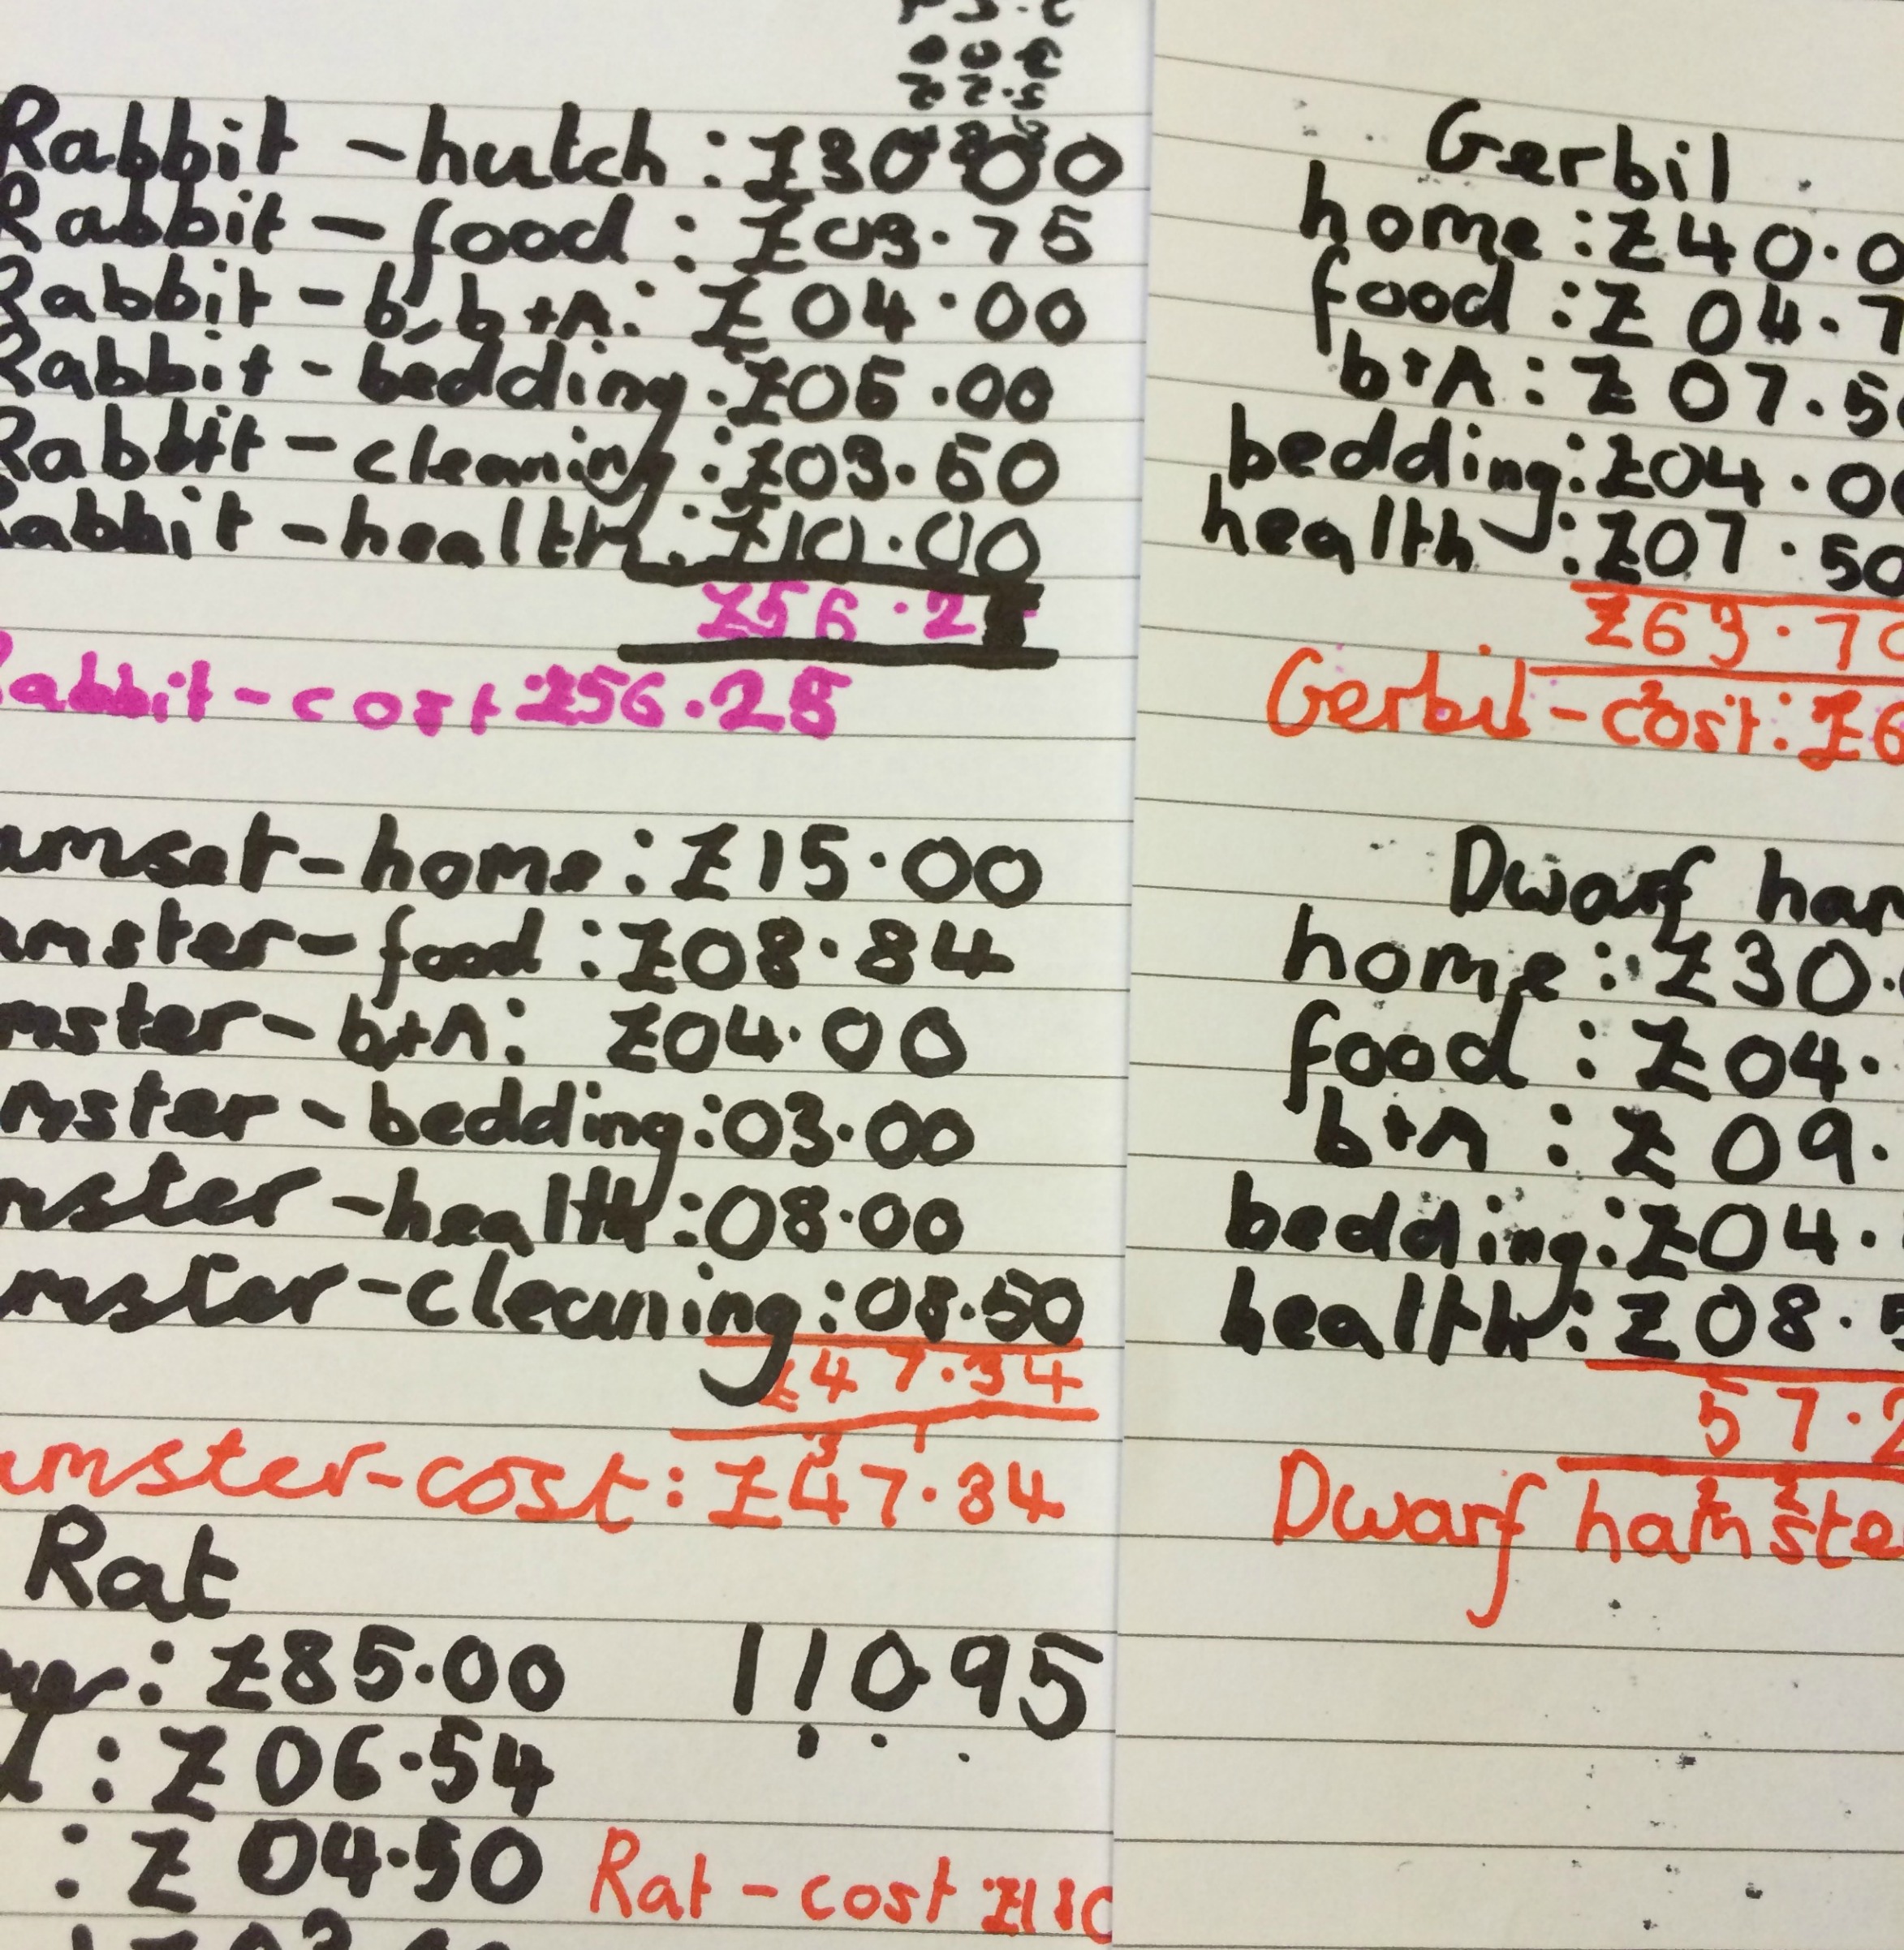 Rabbit - hutch : £30.00
Rabbit - food : £03.75
Rabbit - b, b + n : £04.00
Rabbit - bedding : £05.00
Rabbit - cleaning : £03.50
Rabbit - health : £10.00
£56.2
Rabbit - cost £56.25
amset - home : £15.00
amster - food : £08.84
mster - b+n : £04.00
mster - bedding : 03.00
mster - health : 08.00
amster - cleaning : 08.50
£47.34
amster - cost : £47.34
Rat
: £85.00 110.95
: £06.54
: £04.50
Rat - cost £110
Gerbil
home : £40.0
food : £04.7
b+n : £07.50
bedding : £04.00
health : £07.50
£63.70
Gerbil - cost : £6
Dwarf ham
home : £30.
food : £04.
b+n : £09.
bedding : £04.
health : £08.5
57.2
Dwarf hamste